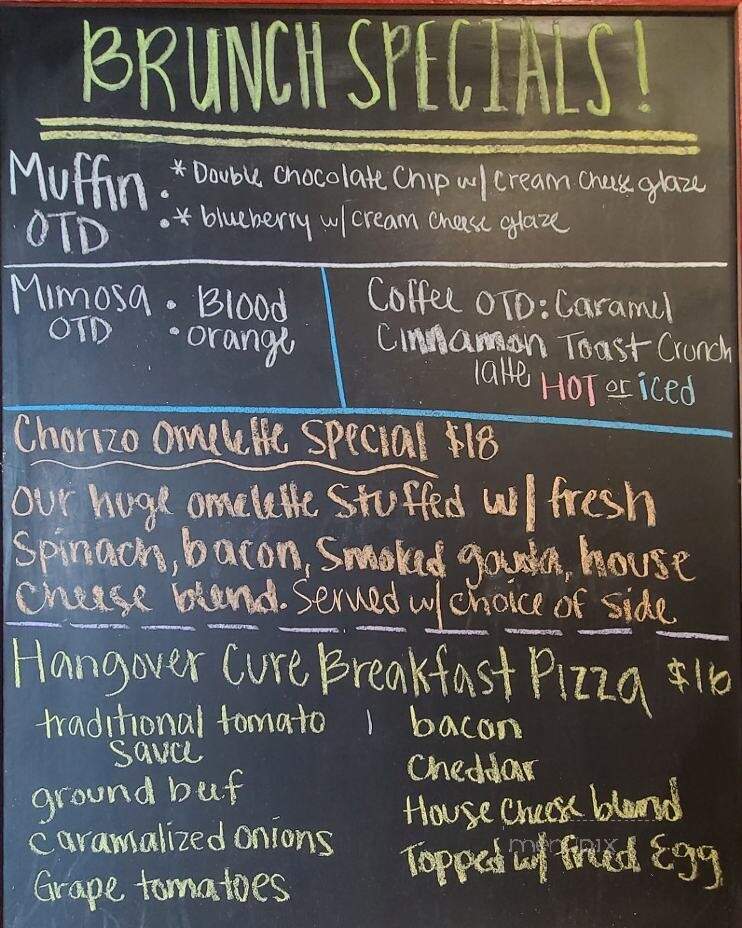 BRUNCH SPECIALS!
Muffin : * Double Chocolate Chip w/ cream cheese glaze
OTD : * blueberry w/ cream cheese glaze
Mimosa • Blood
OTD • orange
Coffee OTD: Caramel
Cinnamon Toast Crunch
latte HOT or iced
Chorizo Omelette Special $18
our huge omelette Stuffed w/ fresh
Spinach, bacon, Smoked gouda, house
cheese blend. Served w/ choice of side
Hangover Cure Breakfast Pizza $16
traditional tomato
sauce
ground beef
caramalized onions
Grape tomatoes
bacon
Cheddar
House cheese blend
Topped w/ fried Egg
menupix